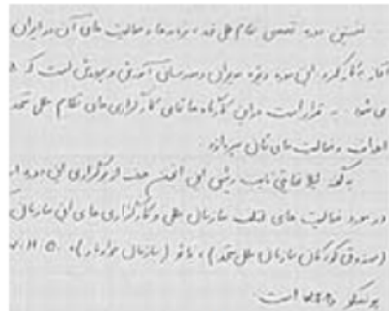 نخستین دوره تخصصی نظام ملل متحد، نهادها و فعالیت های آن در ایران
آغاز به کار کرد این دوره ویژه مدیران و مدرسان آموزشی و پرورش است که
می شود. قرار است در این کارگاه ها تمامی کارگزاری های نظام ملل متحد
اهداف و فعالیت های شان بپردازند.
به گفته لیلا نایب رئیس این انجمن هدف از برگزاری این دوره
در مورد فعالیت های مختلف سازمان ملل و کارگزاری های این سازمان
(صندوق کودکان سازمان ملل متحد)، فائو (سازمان خواربار)،
یونسکو است.